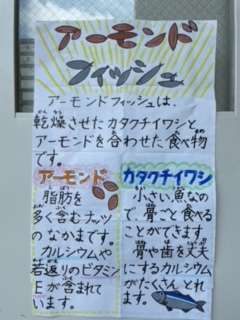 アーモンド
フィッシュ
アーモンドフィッシュは、
乾燥させたカタクチイワシと
アーモンドを合わせた食べ物
です。
アーモンド
脂肪を
多く含むナッツ
のなかまです。
カルシウムや
若返りのビタミン
Eが含まれて
います。
カタクチイワシ
小さい魚なの
で、骨ごと食べる
ことができます。
骨や歯を丈夫
にするカルシウム
がたくさんとれ
ます。